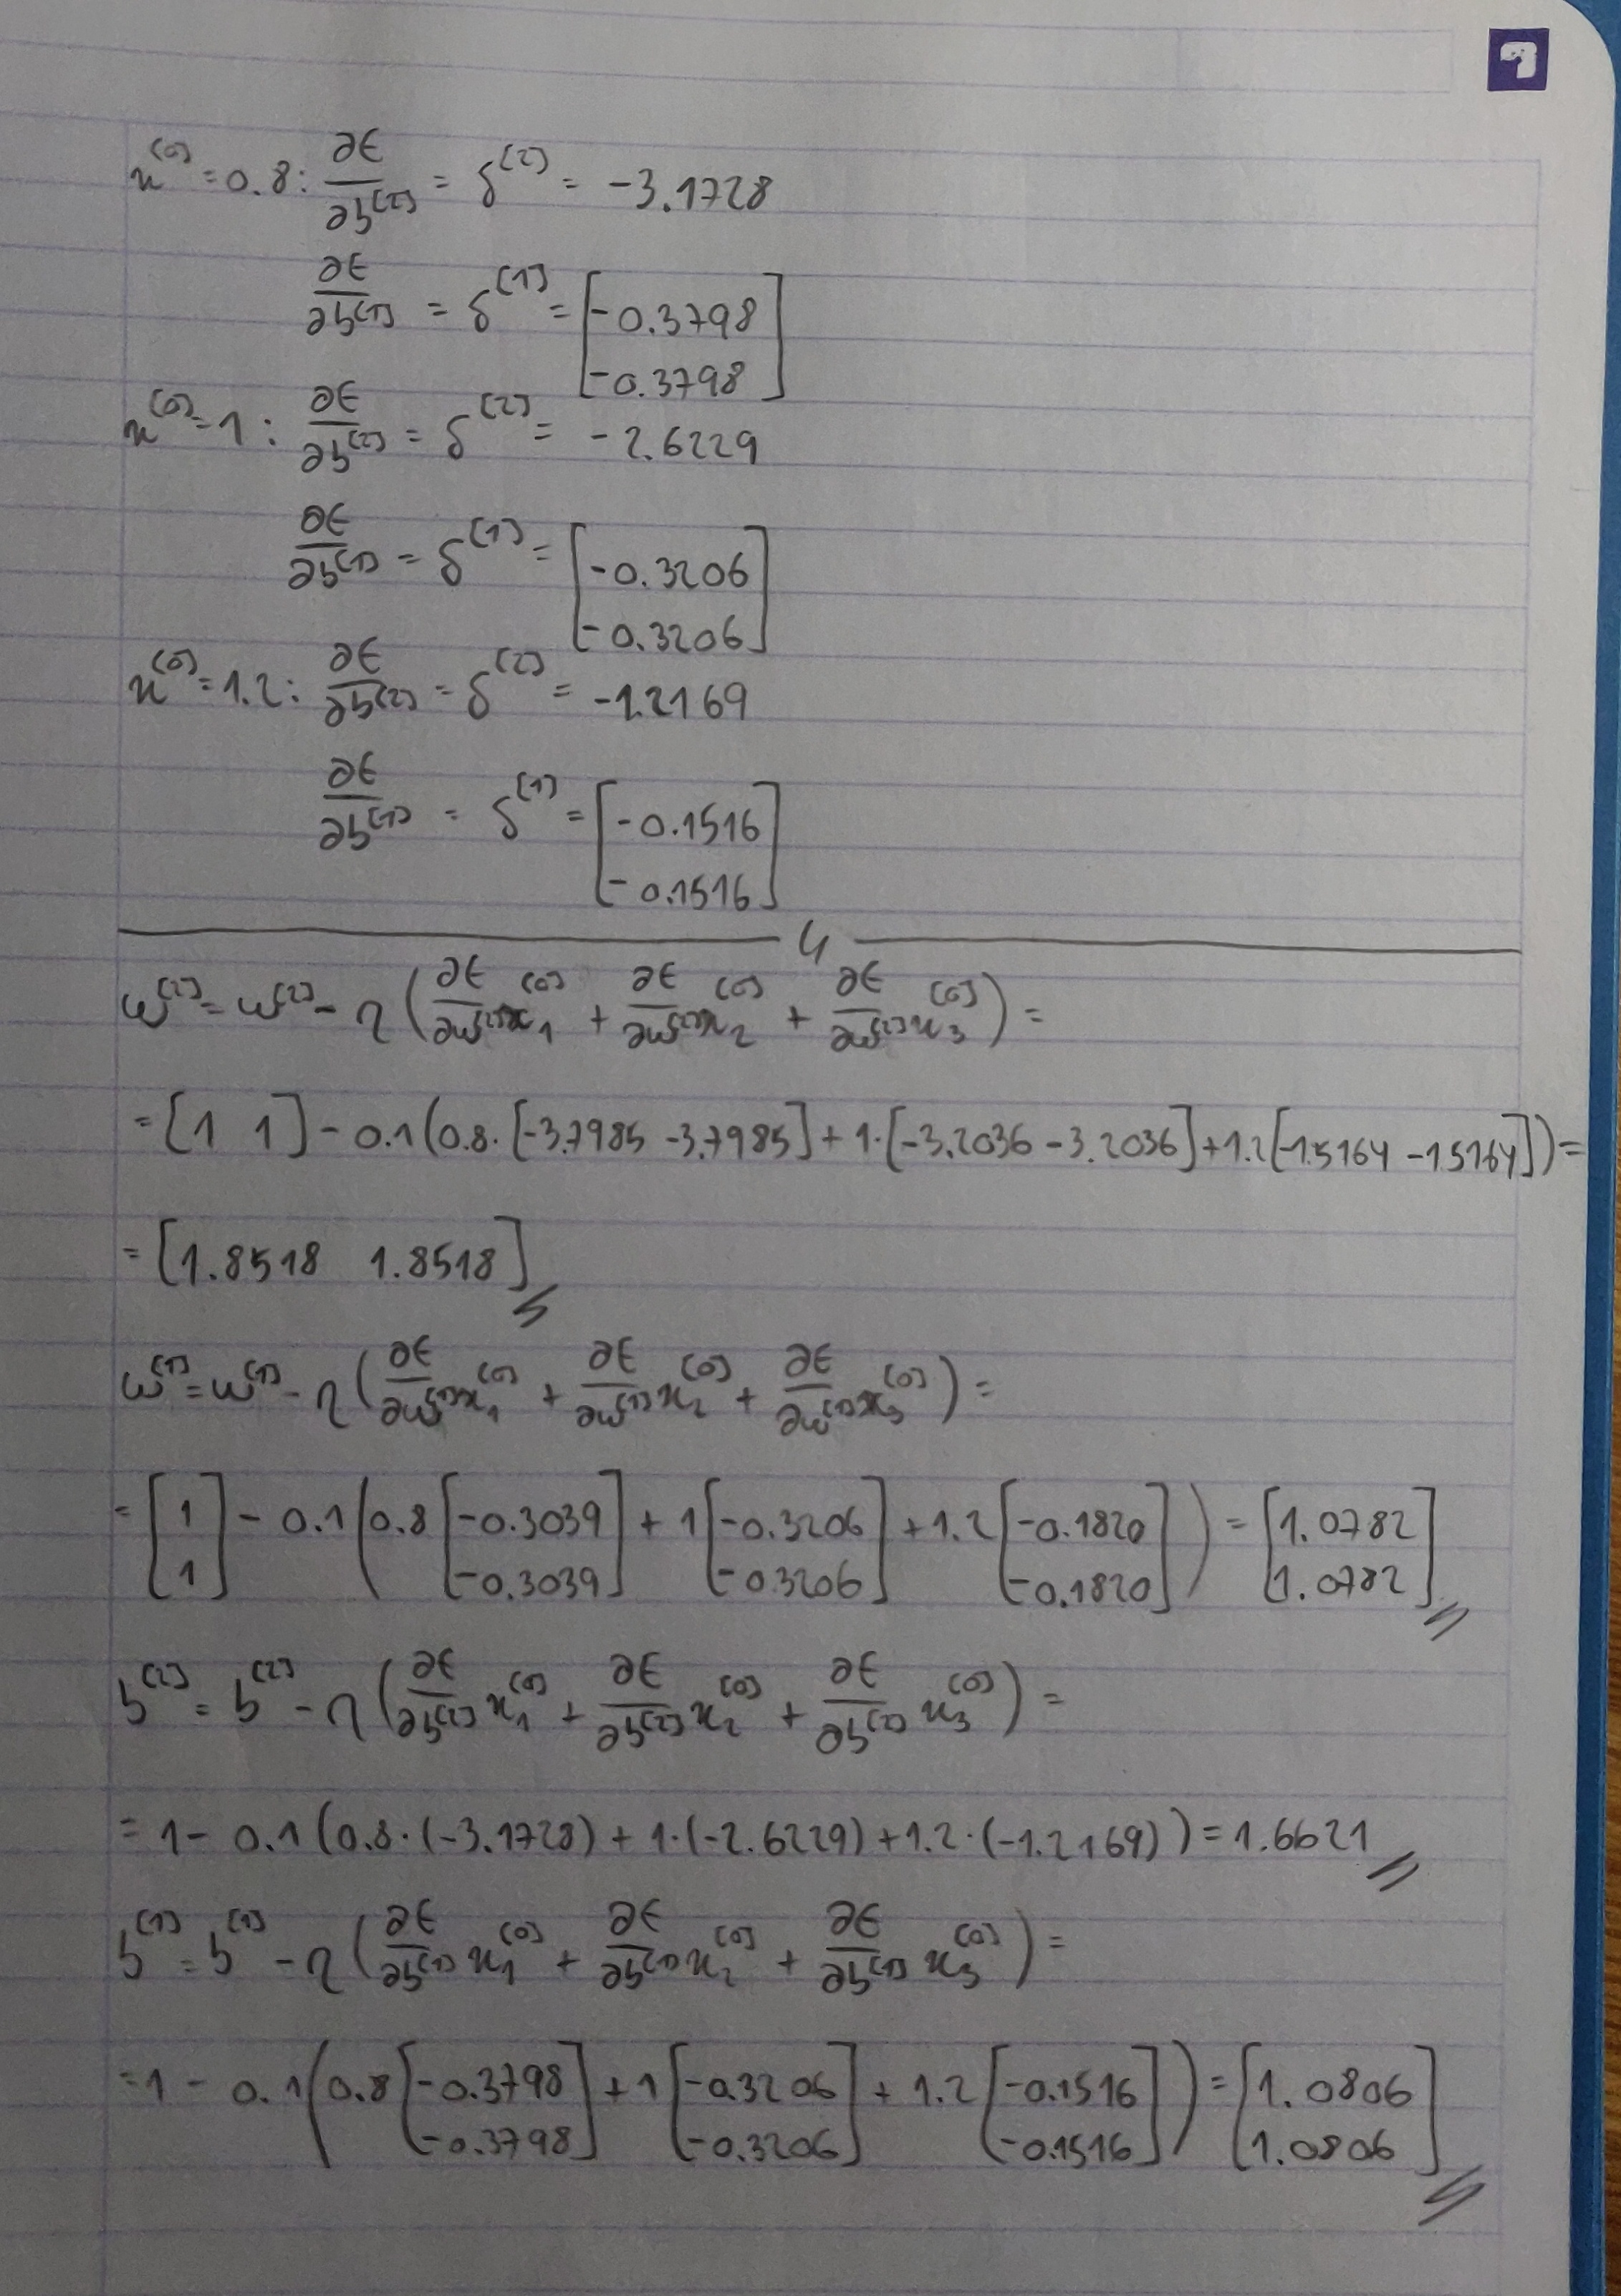 x^(0) = 0.8: ∂E/∂b^(2) = δ^(2) = -3.1728
∂E/∂b^(1) = δ^(1) = [-0.3798
-0.3798]
x^(0) = 1: ∂E/∂b^(2) = δ^(2) = -2.6229
∂E/∂b^(1) = δ^(1) = [-0.3206
-0.3206]
x^(0) = 1.2: ∂E/∂b^(2) = δ^(2) = -1.2169
∂E/∂b^(1) = δ^(1) = [-0.1516
-0.1516]
4
w^(2) = w^(2) - η (∂E/∂w^(2) x_1^(0) + ∂E/∂w^(2) x_2^(0) + ∂E/∂w^(2) x_3^(0)) =
= [1 1] - 0.1 (0.8 · [-3.7985 -3.7985] + 1 · [-3.2036 -3.2036] + 1.2 [-1.5164 -1.5164]) =
= [1.8518 1.8518]
w^(1) = w^(1) - η (∂E/∂w^(1) x_1^(0) + ∂E/∂w^(1) x_2^(0) + ∂E/∂w^(1) x_3^(0)) =
= [1 1] - 0.1 (0.8 [-0.3039 -0.3039] + 1 [-0.3206 -0.3206] + 1.2 [-0.1820 -0.1820]) = [1.0782 1.0782]
b^(2) = b^(2) - η (∂E/∂b^(2) x_1^(0) + ∂E/∂b^(2) x_2^(0) + ∂E/∂b^(2) x_3^(0)) =
= 1 - 0.1 (0.8 · (-3.1728) + 1 · (-2.6229) + 1.2 · (-1.2169)) = 1.6621
b^(1) = b^(1) - η (∂E/∂b^(1) x_1^(0) + ∂E/∂b^(1) x_2^(0) + ∂E/∂b^(1) x_3^(0)) =
= 1 - 0.1 (0.8 [-0.3798 -0.3798] + 1 [-0.3206 -0.3206] + 1.2 [-0.1516 -0.1516]) = [1.0806 1.0806]